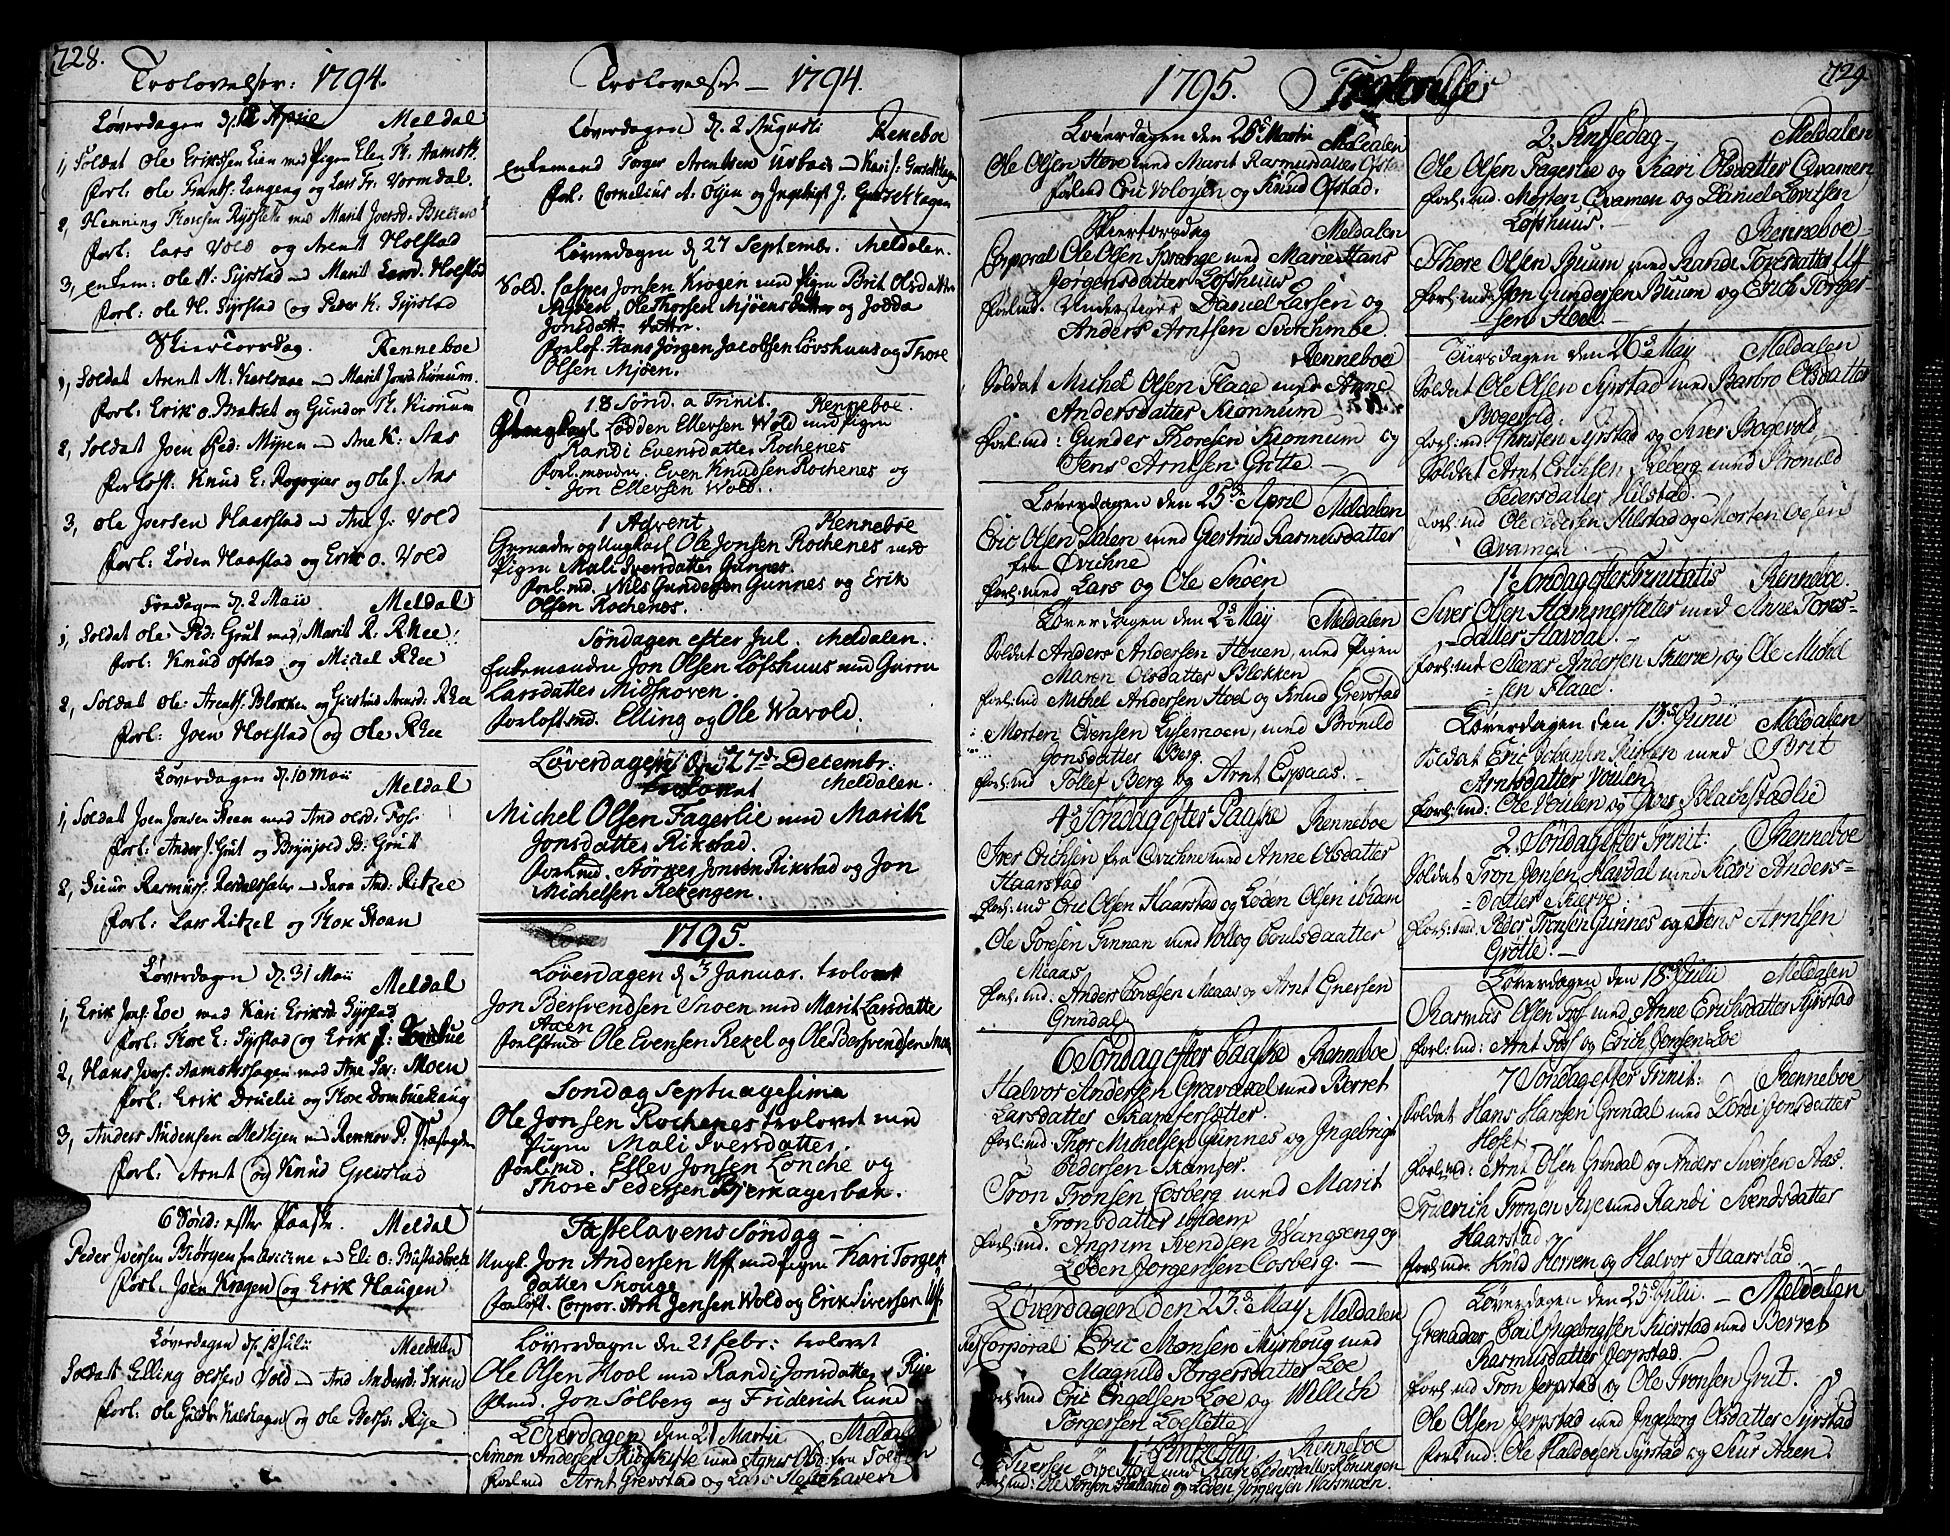 728.
Trolovelser: 1794.
Løverdagen d. Aprie Meldal
1, Soldat Ole Erikssen Lien med Pigen Elen Th. Aamott.
Forl: Ole Frantz. Langeng og Lars Fr: Vormdal.
2, Henning Thoresen Rysslet med Marit Joersd:
Forl: Lars Vold og Arent Holstad
3, Enkem: Ole N: Syrstad med Marit Larsd: Holstad
Forl: Ole H. Syrstad og Peder K. Syrstad
Skiertorsdag. Renneboe
1, Soldat Arent M: med Marit Jonsd: Kiønum.
Forl: Erik O. og Gunder Th. Kiønum
2, Soldat Joen Ped: Myren med Ane K: Aas
Forløft: Knud E: og Ole J. Aas
3, Ole Joersen Haarstad med Ane J: Vold
Forl: Løden Haarstad og Erik O. Vold
Søndagen d. 2 Maii Meldal
1, Soldat Ole Ped: Grut med Marit R: Rhee:
Forl: Knud Ofstad og Michel Rhee
2, Soldat Ole Arentss. Blokken og Giertrud Arensd: Rhee
Forl: Joen Holstad og Ole Rhee
Løverdagen d. 10 Maii Meldal
1, Soldat Joen Jonsen med And Olsd: Foss
Forl: Ander J. Grut og Brynjold B: Grut
2, Siur Rasmuss. med Sara And: Ritzel
Forl: Lars Ritzel og Thore Stoan
Løverdagen d. 31 Maii Meldal
1, Erik Jons. Loe med Kari Eriksd. Syrstad
Forl: Thore E: Syrstad og Erik
2, Hans Joers. Aamotshagen med Ane Mоen
Forl: Erik Druelie og Thore Dombuehaug
3, Anders Andersen med Rennov P:
Forl: Arnt og Knud Grevstad
6 Sønd: efter Paaske. Meldal
Peder Iversen Biørgen med Eli O:
Forl: Joen Kragen og Erik Haugen
Løverdagen d. 12 Julii Meldalen
Soldat Elling Olssen Vold med And Andersd: Snoen
Forl: Ole og Ole Rise
Trolovelser – 1794.
Løverdagen d. 2 Augusti Renneboe
Enkemand Torger Arentsen Urbaie med Kari J:
Forl: Cornelius A. Oyen og Ingebrigt J.
Løverdagen d. 27 Septembr. Meldalen.
Sold. Casper Jonsen Krogen med Pigen Brit Olsdatter
Mjøen. Ole Thorsen Mjøens datter og Jodda
Jonsdatt. datter.
Forlof. Hans Jørgen Jacobsen Løvshuus og Thore
Olsen Mjøen.
18 Sønd. a Trinit. Renneboe.
Ungkarl Lødden Ellevsen Wold med Pigen
Randi Evensdatter Rochenes
Forl.mændr. Even Knudsen Rochenes og
Jon Ellevsen Wold.
1 Advent Renneboe
Grenadeer og Ungkarl Ole Jonsen Rochenes med
Pigen Mali Iversdatter Gunnes.
Forl.md. Nils Gundersen Gunnes og Erik
Olsen Rochenes.
Søndagen efter Jul. Meldalen.
Enkemanden Jon Olsen Løfshuus med Guru
Larsdatter Midskoven.
Forloft.md. Elling og Ole Wavold.
Løverdagen d. 27de Decembr:
trolovet Meldalen.
Michel Olsen Fagerlie med Marith
Jonsdatter Rikstad.
Forl.md. Jonsen Rikstad og Jon
Michelsen Rekengen.
1795.
Løverdagen d. 3 Januar. trolovet
Jon Bersvendsen Snoen med Marit Larsdatter
Aoen
Forlofsmd Ole Evensen Rezel og Ole Bersvendsen Snoen
Søndag Septuagesima
Ole Jonsen Rochenes trolovet med
Pigen Mali Iversdatter.
Forl.md. Ellev Jonsen Lonche og
Thore Pedersen Bjerkagerbak.
Fastelavens Søndag –
Ungk. Jon Andersen Uff med Pigen Kari Torgers
datter Snouge
Forløft. Corpor. Arn Jensen Wold og Erik Siversen Uff.
Løverdagen den 21 Febr: trolovet
Ole Olsen Hool med Randi Jonsdatter Rise
Forl.md. Jon Solberg og Friderich Lund
Løverdagen den 21 Martii Meldalen
Simon Andersen med Agnis Olsd: fra
Forl.md Arnt Grevstad og Lars
1795. Trolovelser
729.
Løverdagen den 28de Martii Meldalen
Ole Olsen Hove med Marit Rasmusdatter Ofstad
Forl:md Eric Voloyen og Knud Ofstad.
Skiertorsdag Meldalen
Corporal Ole Olsen Sprange med Marie Hans
Jørgensdatter Løfshuus
Forl:md. Understiger Daniel Larsen og
Anders Arntsen
Renneboe
Soldat Michel Olsen Flaae med Anne
Andersdatter Kiønnum
Forl:md: Gunder Thoresen Kiønnum og
Jens Arntsen Grötte –
Løverdagen den 25de April Meldalen
Eric Olsen Dalen med Giertrud Rasmusdatter
fra Qvichne
Forl:md Lars og Ole Snoen
Løverdagen den 2de May Meldalen
Soldat Anders Andersen Hoven, med Pigen
Maren Olsdatter Blokken
Forl:md Michel Andersen Hoel og Knud Grevstad
Morten Evensen Lysemoen, med Brønild
Jonsdatter Berg.
Forl:md Tollef Berg og Arnt Espaas. –
4de Søndag efter Paaske Renneboe
Iver Erichsen fra Qvichne med Anne Olsdatter
Haarstad
Forl:md Eric Olsen Haarstad og Loden Olsen ibidem
Ole Toresen Finnan med Vollog Poulsdaatter
Meaas
Forl:md: Anders Meaas og Arnt Enersen
Grindal
6 Søndag efter Paaske Renneboe
Halvor Andersen Gravaxel med Berret
Larsdatter Skamfersætter.
Forl:md: Thor Michelsen Gunnes og Ingebrigt
Pedersen Skamfer.
Tron Tronsen Cosberg med Marit
Tronsdatter ibidem
Forl:md. Angrim Svendsen Wangseng og
Løden Jørgensen Cosberg. –
Løverdagen den 23de May Meldalen
Corporal Eric Monsen Myrhoug med
Magnild Torgersdatter Loe
Forl:md Eric Engelsen Loe og Willich
Torgersen Loeslette
1te Pintsedag Renneboe
med Kari Pedersdatter Røningen
Forl:md: Ole Jonson og Løden Jørgensen
2. Pintsedag Meldalen
Ole Olsen Fagerlie og Kari Olsdatter Qvamen
Forl:md. Morten Qvamen og Daniel Lortsen
Løfshuus. –
Renneboe –
Thore Olsen Buum med Randi Toresdatter Uf
Forl:md: Jon Gundersen Buum og Erich Torger
sen Hoel. –
Tiirsdagen den 26de May Meldalen
Soldat Ole Olsen Syrstad med Barbro Olsdatter
Bogevold.
Forl:md Christen Syrstad og Siver Bogevold
Soldat Arnt Erichsen Reberg med Brønild
Pedersdatter Hilstad.
Forl:md Ole Pedersen Hilstad og Morten Olsen
Qvamen.
1te Søndag efter Trinitatis Renneboe.
Siver Olsen Hammersetter med Anne Tores-
datter Havdal.
Forl:md: Steener Andersen Skierve, og Ole Michel
sen Flaae.
Løverdagen den 13de Junii Meldalen
Soldat Eric Johansen med Brit
Arntsdatter Voulen
Forl:md: Ole Voulen og Iver Blachstadlie
2. Søndag efter Trinit: Renneboe
Soldat Tron Jensen Havdal med Kari Anders-
datter Skierve
Forl:md: Peder Tronsen Gunnes og Jens Arntsen
Grötte. –
Løverdagen den 18de Julii Meldalen
Rasmus Olsen Fos med Anne Erichsdatter Syrstad
Forl:md: Arnt Fos og Erich Jonsen Loe
7 Søndag efter Trinit: Renneboe
Soldat Hans Hansen Grindal med Jonsdatter
Hoset
Forl:md: Arnt Olsen Grindal og Anders Siversen Aas.
Friderich Tronsen Rise med Randi Svendsdatter
Haarstad
Forl:md. Knud Herrem og Halvor Haarstad
Løverdagen den 25de Julii. – Meldalen
Grenadær Poul Ingebrigtsen med Berret
Rasmusdatter Jerpstad.
Forl:md Tron Jerpstad og Ole Tronsen Grut.
Ole Olsen Jerpstad med Ingeborg Olsdatter Syrstad
Forl:md: Ole Haldogen Syrstad og Siur Aaen.